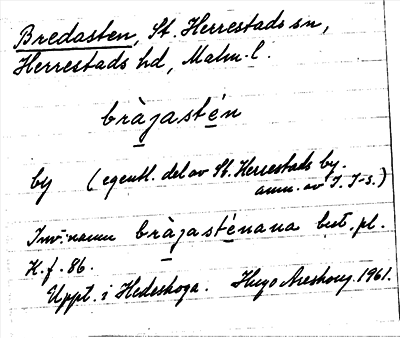 Bredasten, St. Herrestads sn,
Herrestads hd, Malm. l.
bràjastén
by (egentl. del av St. Herrestads by.
anm. av I. I-s.)
Inv:namn bràjasténana best. pl.
K. f. 86.
Uppt. i Hedeskoga. Hugo Areskoug. 1961.